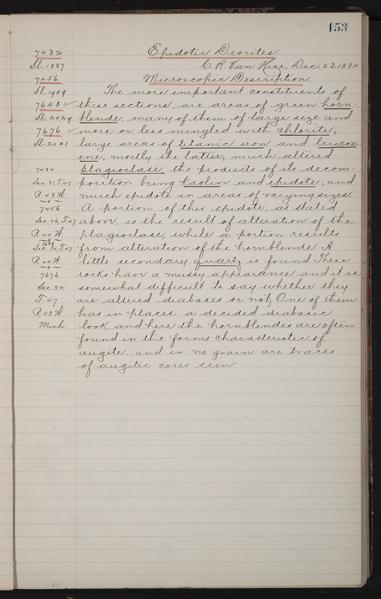 153
7432 Epidotic Diorites.
Sl. 1887 C. R. Van Hise, Dec. 23. 1884
7456 Microscopic Description.
Sl. 1909 The more important constituents of
these sections, are areas of green horn-
Sl. 2029 blende, many of them of large size and
7676 more or less mingled with chlorite,
Sl. 2001 large areas of titanic iron and leucox-
ene, mostly the latter, much altered
7432 plagioclase, the products of its decom-
Sec. 31, T. 47 position being kaolin and epidote, and
R. 43 W. much epidote in areas of varying sizes.
7456 A portion of this epidote, as stated
T. 47 above, is the result of alteration of the
R. 44 W. plagioclase, while a portion results
T. 47 from alteration of the hornblende. A
R. 44 W. little secondary quartz is found. These
7676 rocks have a mussy appearance and it is
Sec. 32. somewhat difficult to say whether they
T. 47 are altered diabases or not. One of them
R. 43 W. has in places a decided diabasic
Mich. look, and here the hornblendes are often
found in the forms characteristic of
augite, and in no grain are traces
of augitic cores seen